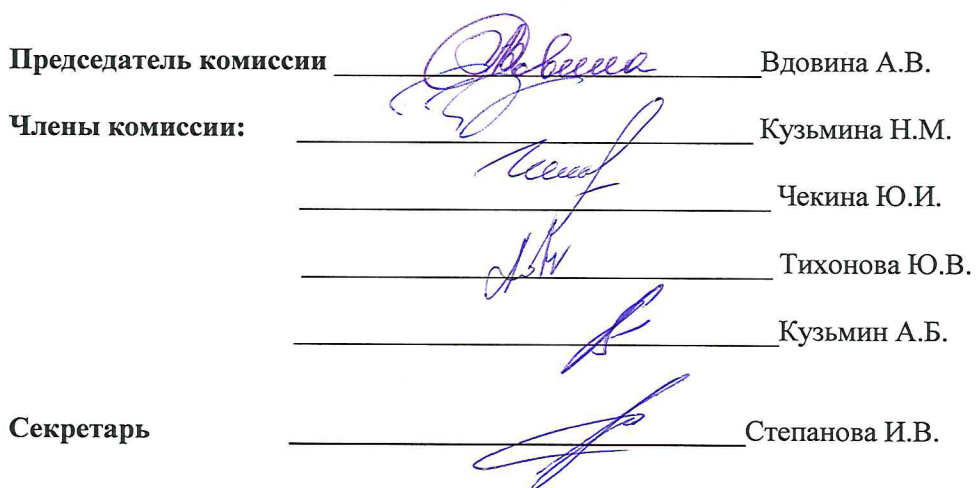 Председатель комиссии Вдовина А.В.
Члены комиссии: Кузьмина Н.М.
Чекина Ю.И.
Тихонова Ю.В.
Кузьмин А.Б.
Секретарь Степанова И.В.